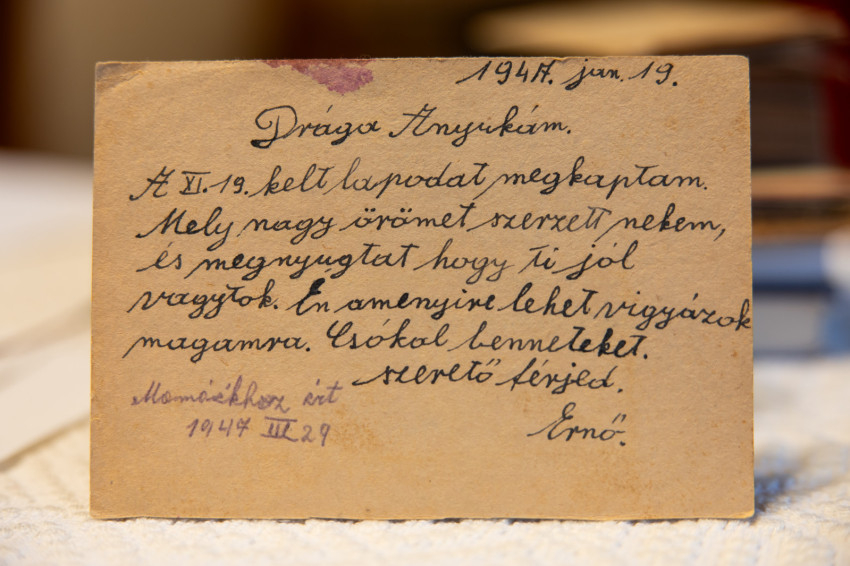 1947. jan. 19.
Drága Anyukám.
A XI. 19. kelt lapodat megkaptam.
Mely nagy örömet szerzett nekem,
és megnyugtat hogy ti jól
vagytok. Én amenyire lehet vigyázok
magamra. Csókol benneteket.
szerető férjed.
Ernő.
Mamáékhoz ért
1947 III 29